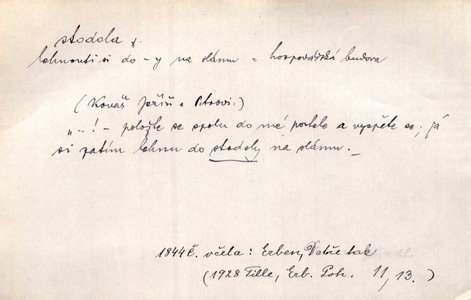 stodola f.
lehnouti si do -y na slámu = hospodářská budova
(Kovář Ježíši a Petrovi:)
"..! - položte se spolu do mé postele a vyspěte se; já
si zatím lehnu do stodoly na slámu._
1844 Č. včela: Erben, Dobře tak
(1928 Tille, Erb. Poh. 11, 13.)